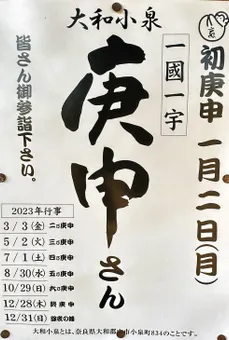 大和小泉
初庚申 一月二日(月)
一國一字
庚申さん
皆さん御参詣下さい。
2023年行事
3/3(金) 二の庚申
5/2(火) 三の庚申
7/1(土) 四の庚申
8/30(水) 五の庚申
10/29(日) 六の庚申
12/28(木) 終庚申
12/31(日)
大和小泉とは、奈良県大和郡山市小泉町834のことです。